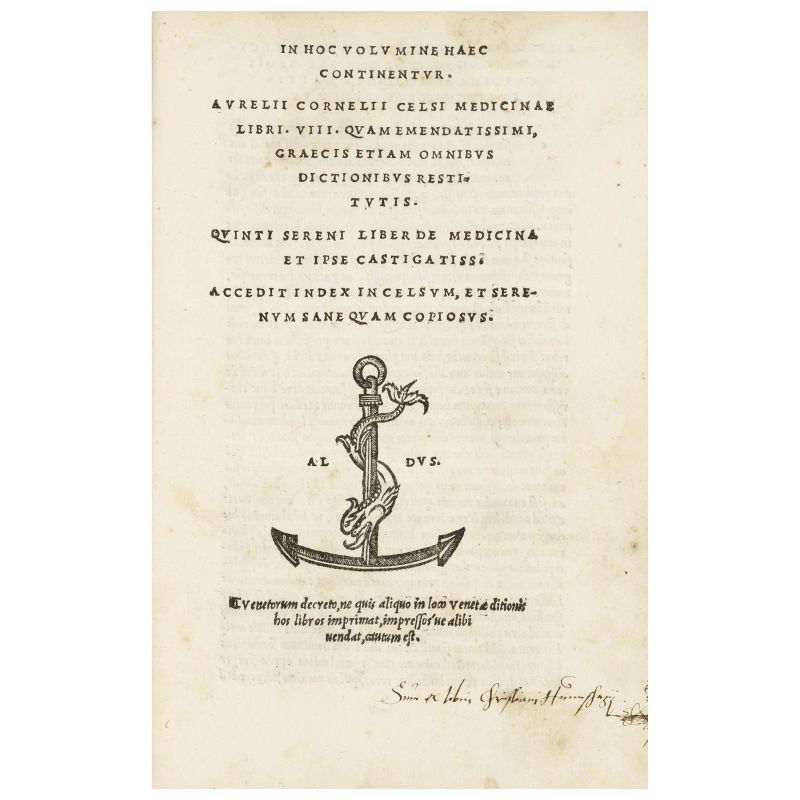 IN HOC VOLVMINE HAEC
CONTINENTVR.
AVRELII CORNELII CELSI MEDICINAE
LIBRI. VIII. QVAM EMENDATISSIMI,
GRAECIS ETIAM OMNIBVS
DICTIONIBVS RESTI=
TVTIS.
QVINTI SERENI LIBER DE MEDICINA
ET IPSE CASTIGATISS.
ACCEDIT INDEX IN CELSVM, ET SERE=
NVM SANE QVAM COPIOSVS.
AL DVS.
Venetorum decreto, ne quis aliquo in loco Venetæ ditionis
hos libros imprimat, impreſſos ue alibi
uendat, cautum eſt.
Sum ex libris Christiani